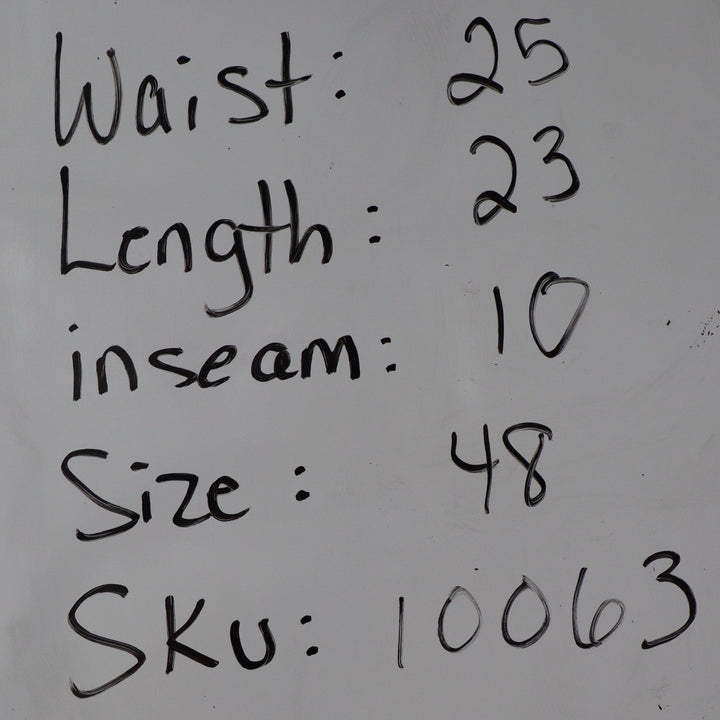 Waist: 25
Length: 23
inseam: 10
Size: 48
SKU: 10063